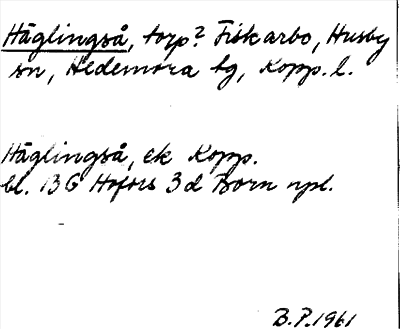 Häglingså, torp? Fiskarbo, Husby
sn, Hedemora tg, Kopp. l.
Häglingså, ek Kopp.
bl. 13G Hofors 3d Born npl.
B.P. 1961